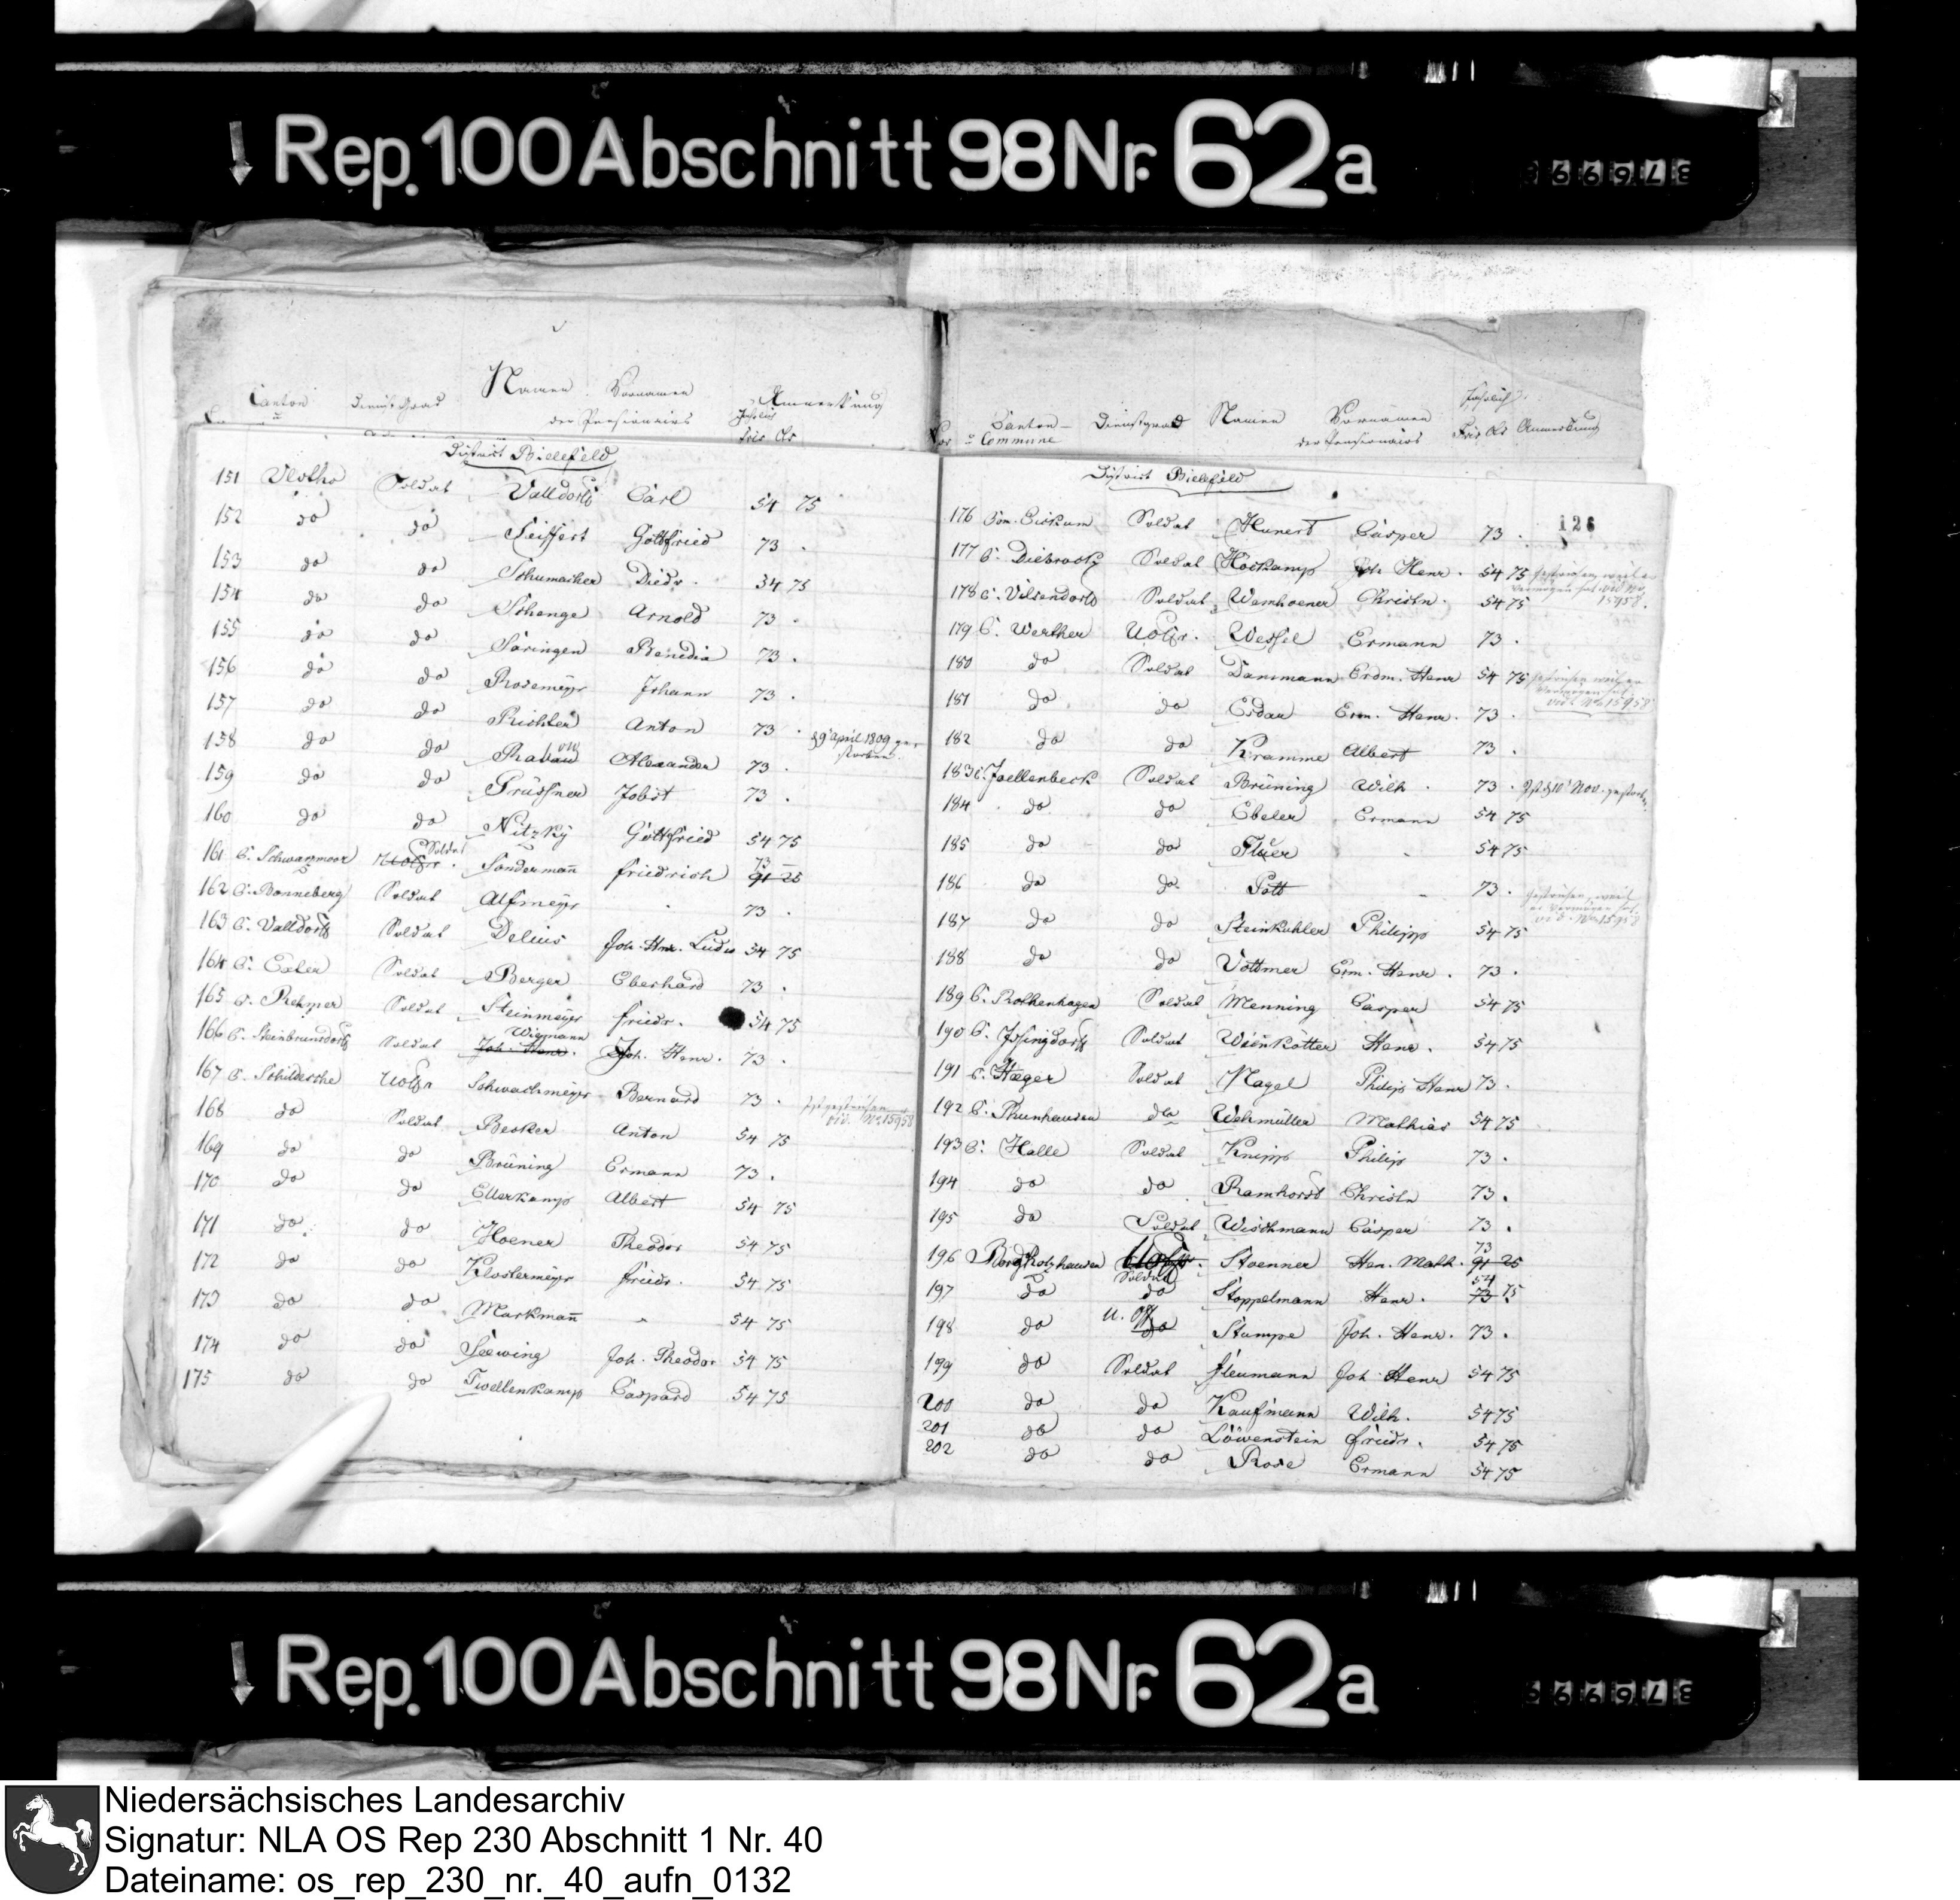 Rep. 100 Abschnitt 98 Nr. 62a
376999
Canton Dienst Grad Namen Vornamen Jährlich Anmerkung
der Pensionairs Frcs Cts
District Bielefeld
151 Vlotho Soldat Valldorf Carl 54 75
152 do do Seiffert Gottfried 73 .
153 do do Schumacher Diedr. 54 75
154 do do Schenge Arnold 73 .
155 do do Säringen Benedix 73 .
156 do do Rosemeyer Johann 73 .
157 do do Richter Anton 73 .
158 do do Rabau Alexander 73 . 9 April 1809 gestorben.
159 do do Prüssner Jobst 73 .
160 do do Nitzky Gottfried 54 75
161 C. Schwarzmoor Uoffr. Soldat Sondermañ Friedrich 73 – 91 25
162 C. Bonneberg Soldat Alfmeyer 73 .
163 C. Valldorf Soldat Delius Joh. Hnr. Ludw 54 75
164 C. Exter Soldat Berger Eberhard 73 .
165 C. Rehmer Soldat Steinmeyer Friedr. 54 75
166 C. Steinbruendorf Soldat Joh. Henr. Wiemann Joh. Henr. 73 .
167 C. Schildesche Uoffr Schwachmeyer Bernard 73 . ist gestrichen vid. No 15958
168 do Soldat Becker Anton 54 75
169 do do Brüning Ermann 73 .
170 do do Ellerkamp Albert 54 75
171 do do Hoener Theodor 54 75
172 do do Klostermeyer Friedr. 54 75
173 do do Markmañ " 54 75
174 do do Seewing Joh. Theodor 54 75
175 do do Twellenkamp Caspard 54 75
Canton u Commune Dienstgrad Namen Vornamen Jährlich Anmerkung
der Pensionairs Frcs Cts
District Bielefeld
126
176 Soldat Hunert Casper 73 .
177 C. Diebrock Soldat Höckamp Joh. Henr. 54 75 gestrichen, weil er Vermögen hat. vid No 15958.
178 C. Vilsendorf Soldat Wemhoener Christn. 54 75
179 C. Werther Uoffr. Wessel Ermann 73 .
180 do Soldat Dammann Erdm. Henr 54 75 gestrichen weil er Vermögen hat. vid. No 15958
181 do do Esdar Erm. Henr. 73 .
182 do do Kramme Albert 73 .
183 C. Joellenbeck Soldat Brüning Wilh. 73 .
184 do do Ebeler Ermann 54 75
185 do do Flüer 54 75
186 do do Pott 73 . gestrichen, weil er Vermögen hat. vid. No 15958
187 do do Steinkuhler Philipp 54 75
188 do do Vottmer Erm. Henr. 73 .
189 C. Rothenhagen Soldat Menning Casper 54 75
190 C. Issingdorf Soldat Weinkötter Henr. 54 75
191 C. Hæger Soldat Nagel Philip Henr 73 .
192 C. Thunhausen do Wehmüller Mathias 54 75
193 C. Halle Soldat Knipp Philip 73 .
194 do do Ramhorst Christn 73 .
195 do Soldat Wischmann Casper 73 .
196 Borgholzhausen Uoffr. Stoenner Hen. Math. 73 91 25
197 do Soldat do Stoppelmann Henr. 54 75 73
198 do U. Off do Stumpe Joh. Henr. 73 .
199 do Soldat Heumann Joh Henr 54 75
200 do do Kaufmann Wilh. 54 75
201 do do Löwenstein Friedr. 54 75
202 do do Rose Ermann 54 75
Rep. 100 Abschnitt 98 Nr. 62a
376999
Niedersächsisches Landesarchiv
Signatur: NLA OS Rep 230 Abschnitt 1 Nr. 40
Dateiname: os_rep_230_nr._40_aufn_0132